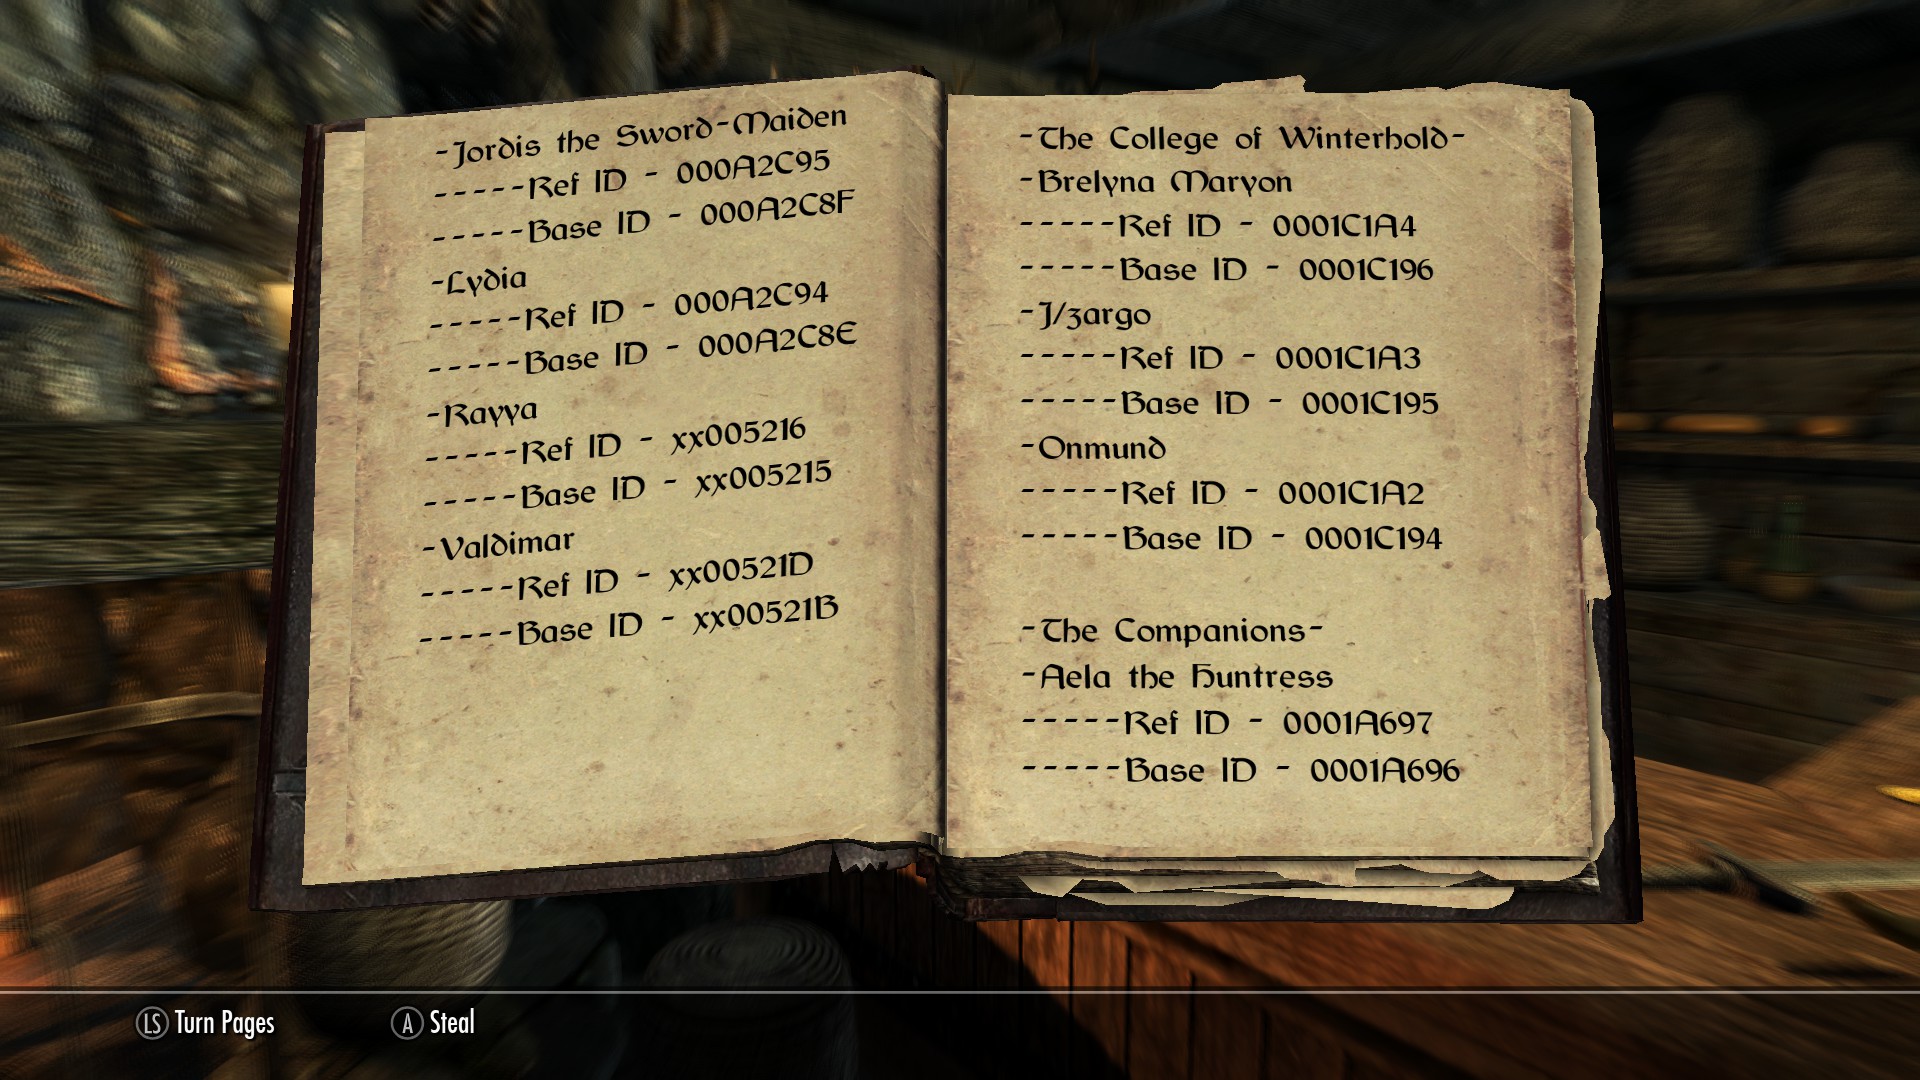 -Jordis the Sword-Maiden
-----Ref ID - 000A2C95
-----Base ID - 000A2C8F
-Lydia
-----Ref ID - 000A2C94
-----Base ID - 000A2C8E
-Rayya
-----Ref ID - xx005216
-----Base ID - xx005215
-Valdimar
-----Ref ID - xx00521D
-----Base ID - xx00521B
-The College of Winterhold-
-Brelyna Maryon
-----Ref ID - 0001C1A4
-----Base ID - 0001C196
-J/zargo
-----Ref ID - 0001C1A3
-----Base ID - 0001C195
-Onmund
-----Ref ID - 0001C1A2
-----Base ID - 0001C194
-The Companions-
-Aela the Huntress
-----Ref ID - 0001A697
-----Base ID - 0001A696
LS Turn Pages
A Steal